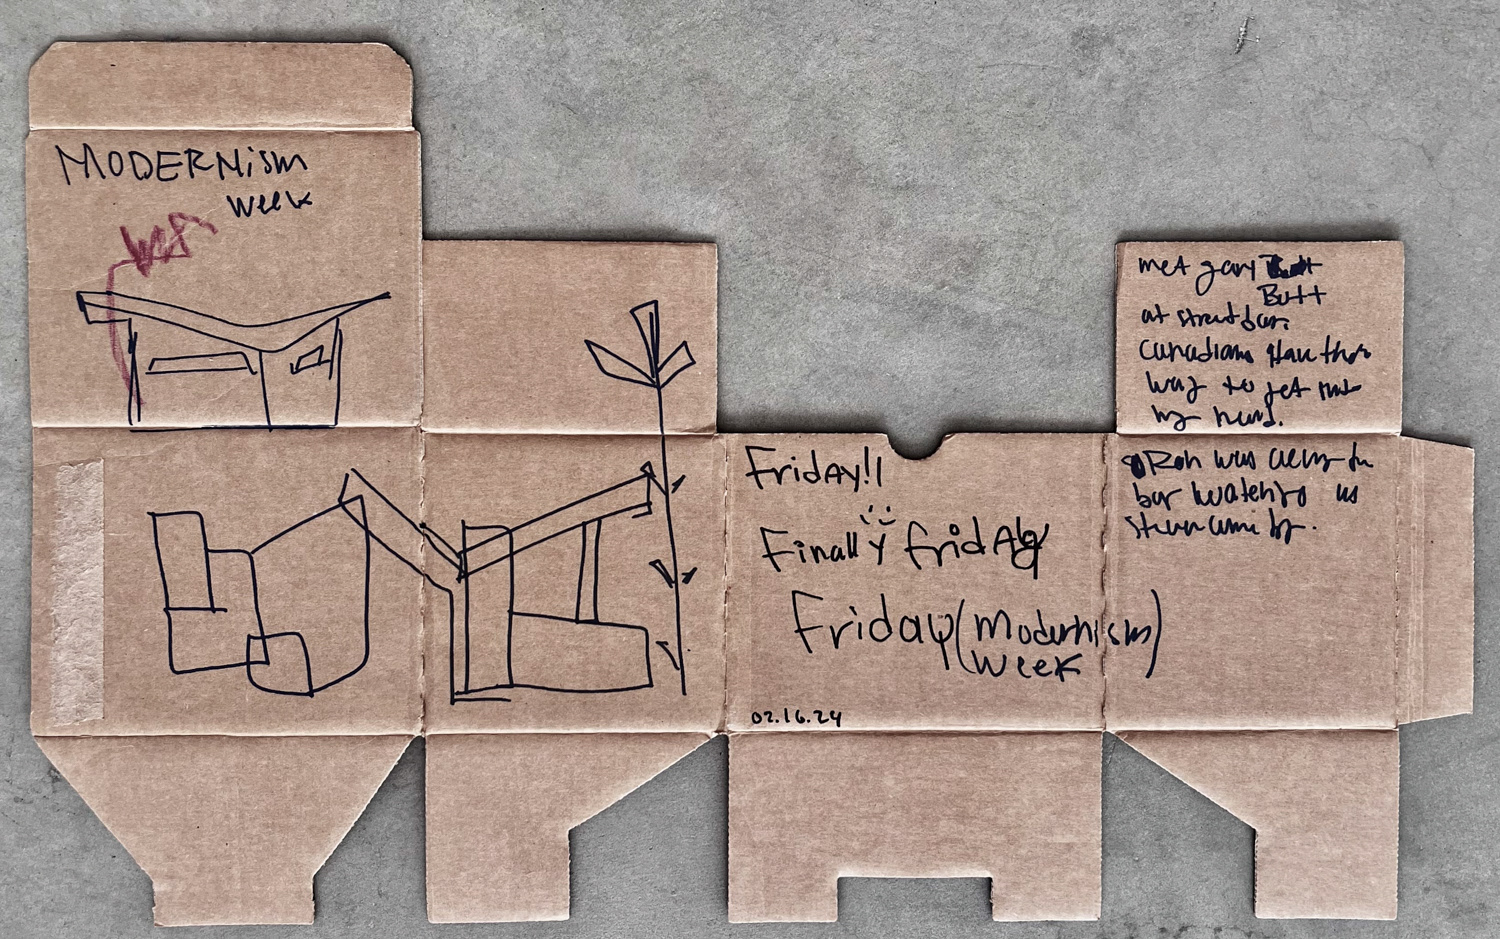 MODERNism
week
Friday!!
Finally fridAy
Friday (Modernism)
week
02.16.24
met gary
Butt
at street bar.
Canadians
way to get
my hand.
Ron was
bar watching us